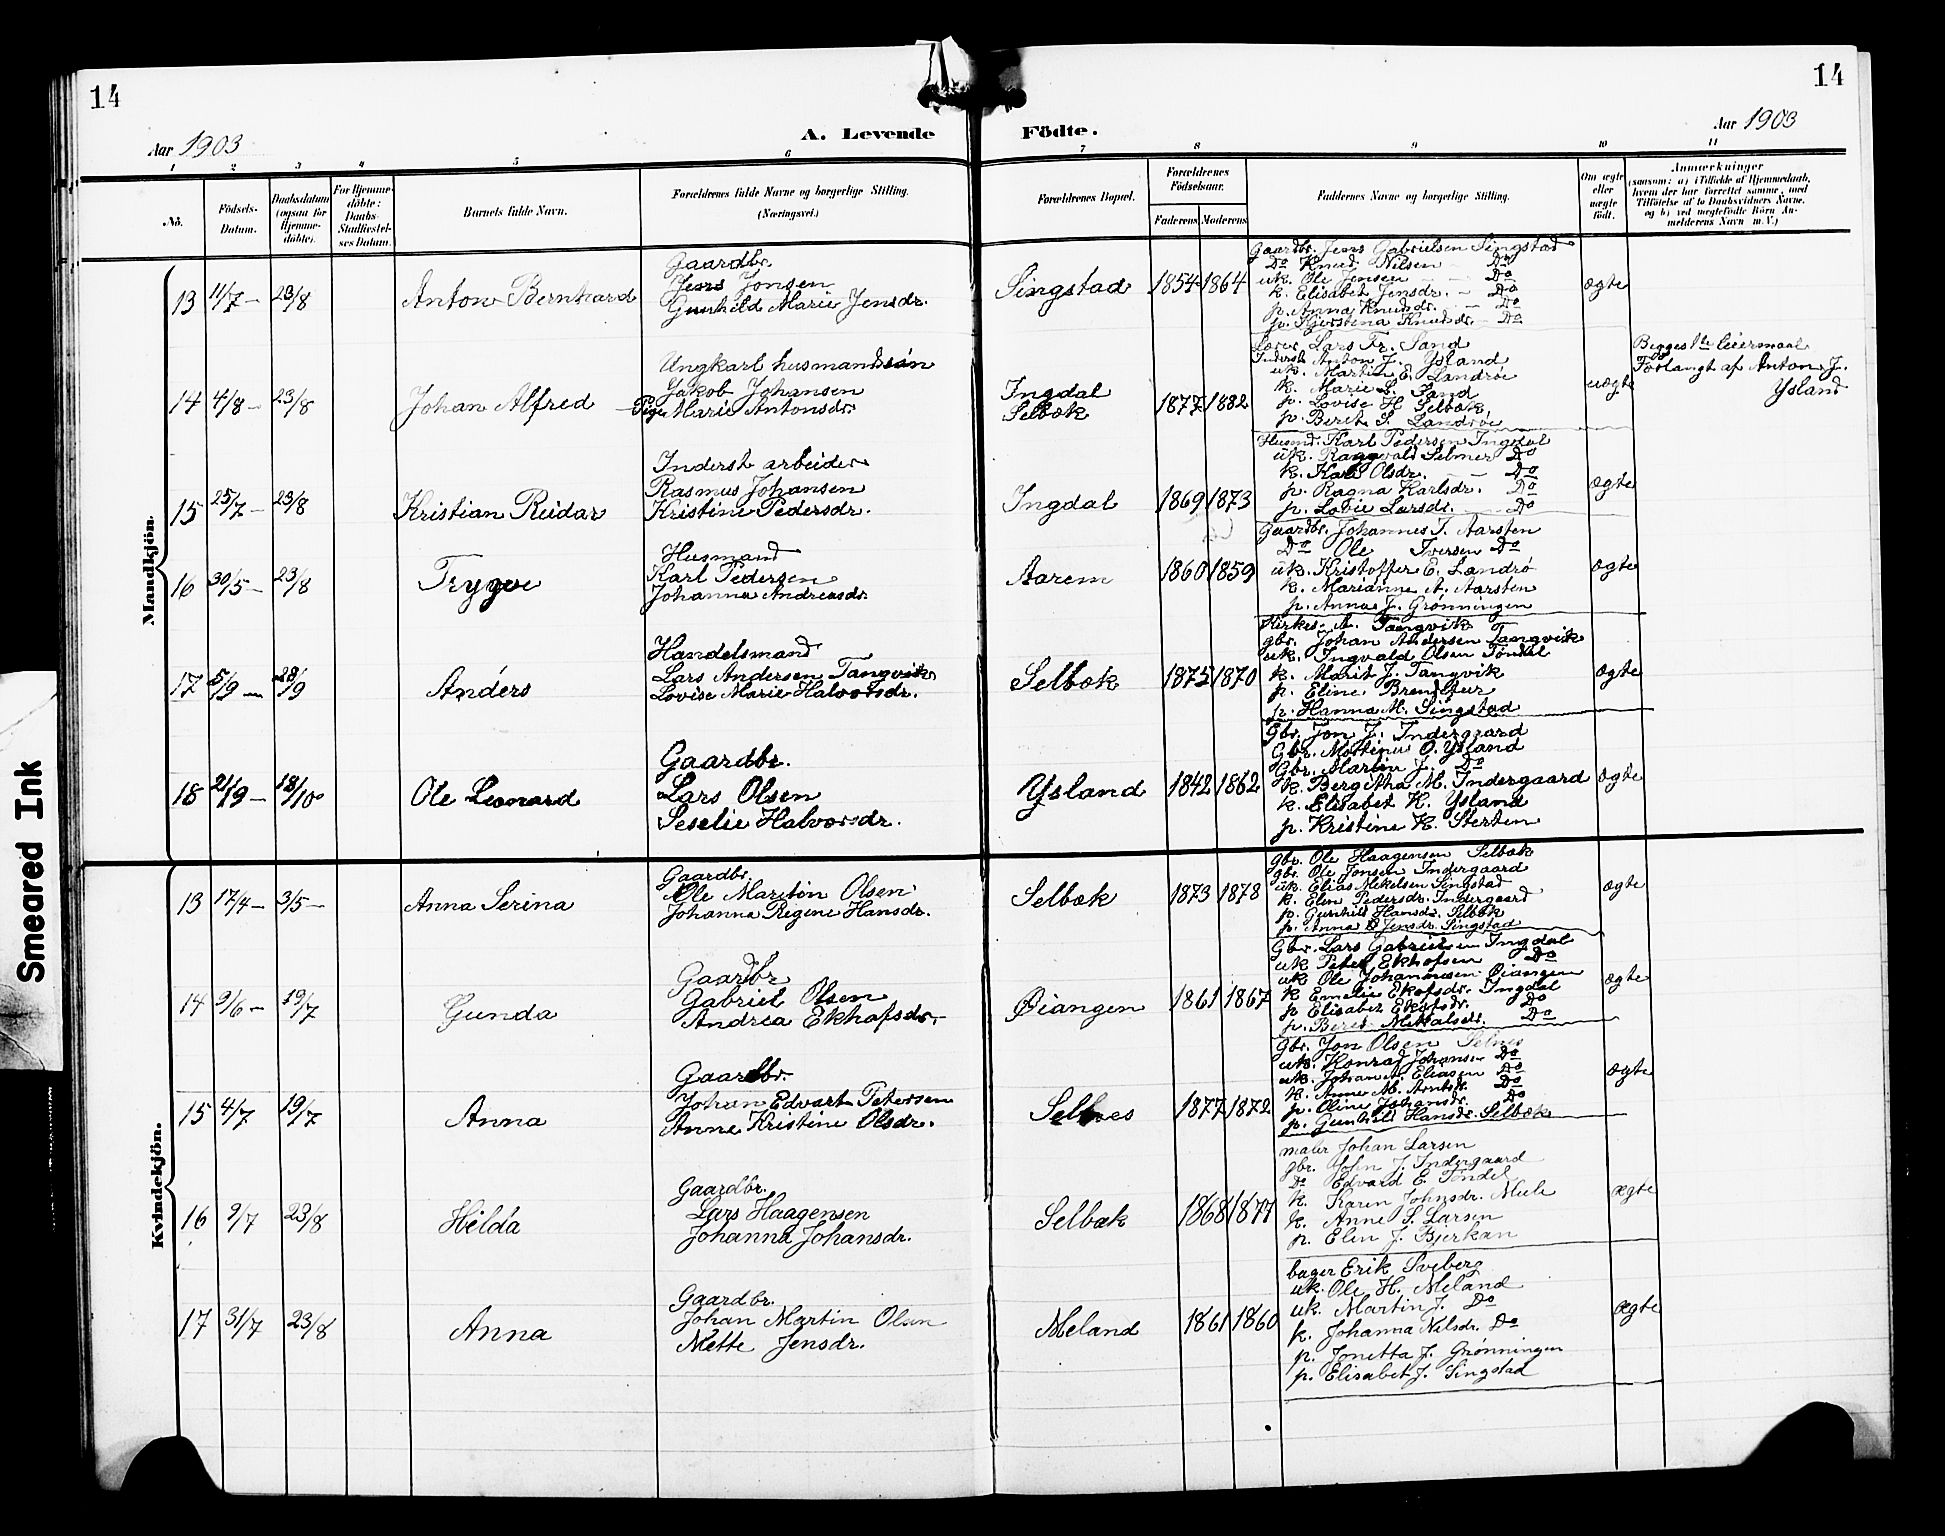 14
14
Aar 1903
A. Levende
Födte.
Aar 1903
1
2
3
4
5
6
7
8
9
10
11
No.
Födsels-
Datum.
Daabsdatum
(ogsaa for
Hjemme-
döbte).
For Hjemme-
döbte:
Daabs-
Stadfæstel-
ses Datum.
Barnets fulde Navn.
Forældrenes fulde Navne og borgerlige Stilling.
(Næringsvei.)
Forældrenes Bopæl.
Forældrenes
Födselsaar.
Faderens
Moderens
Faddernes Navne og borgerlige Stilling.
Om ægte
eller
uægte
födt.
Anmærkninger
(saasom: a) i Tilfælde af Hjemmedaab,
hvem der har forrettet samme, med
Tilföielse af to Daabsvidners Navne,
og b) ved uægtefödte Börn An-
melderens Navn m. V.)
Mandkjön.
13 11/7 - 23/8
Anton Bernhard
Gaardbr.
Jens Jonsen
Gunhild Marie Jensdr.
Singstad
1854 1864
Gaardbr. Jens Gabrielsen Singstad
Do Knud Nilsen - Do
uk. Ole Jensen - Do
k. Elisabet Jensdr. - Do
p. Anna Knudsdr. - Do
p. Kjerstina Knudsdr. - Do
ægte
14 4/8 - 23/8
Johan Alfred
Ungkarl husmandssön
Jakob Johansen
Pige Marie Antonsdr.
Ingdal
Selbæk
1877 1882
Lærer Lars Fr. Sand
Inderst Anton J. Ysland
uk. Martin E. Landrö
k. Marie L. Sand
p. Lovise H. Selbæk
p. Berit S. Landrö
uægte
Begges 1ste leiermaal
Forlangt af Anton J.
Ysland
15 25/7 - 23/8
Kristian Reidar
Inderst arbeider
Rasmus Johansen
Kristine Pedersdr.
Ingdal
1869 1873
Husmd. Karl Pedersen Ingdal
uk. Ragnvald Selmer Do
k. Karl Olsdr. - Do
p. Ragna Karlsdr. Do
p. Lovie Larsdr. Do
ægte
16 30/5 - 23/8
Trygve
Husmand
Karl Pedersen
Johanna Andreasdr.
Aarem
1860 1859
Gaardbr. Johannes I. Aarsten
Do Ole Iversen Do
uk. Kristoffer E. Landrö
k. Marianne A. Aarsten
p. Anna J. Grønningen
ægte
17 5/9 - 28/9
Anders
Handelsmand
Lars Andersen Tangvik
Lovise Marie Halvorsdr.
Selbæk
1875 1870
Kirkes. A. Tangvik
gbr. Johan Andersen Tangvik
uk. Ingvald Olsen Töndel
k. Marit J. Tangvik
p. Eline
p. Hanna M. Singstad
ægte
18 21/9 - 18/10
Ole Leonard
Gaardbr.
Lars Olsen
Seselie Halvorsdr.
Ysland
1842 1862
Gbr. Jon J. Indergaard
Gbr. Mortinus O. Ysland
Gbr. Martin J. Do
k. Bergitha M. Indergaard
k. Elisabet K. Ysland
p. Kristine K. Sterten
ægte
Kvindekjön.
13 17/4 - 3/5 -
Anna Serina
Gaardbr.
Ole Maritin Olsen
Johanna Regine Hansdr.
Selbæk
1873 1878
gbr. Ole Haagensen Selbæk
gbr. Ole Jonsen Indergaard
uk. Elias Mekelsen Singstad
k. Elen Pedersdr. Indergaard
p. Gunhild Hansdr. Selbæk
p. Anna Jensdr. Singstad
ægte
14 9/6 - 19/7
Gunda
Gaardbr
Gabriel Olsen
Andrea Ekhofsdr.
Øiangen
1861 1867
Gbr. Lars Gabrielsen Ingdal
uk Peter Ekhofsen Do
uk Ole Johannesen Øiangen
k Emelie Ekofsdr. Ingdal
p Elisabet Ekofsdr. Do
p. Beret Mekalsdr. Do
ægte
15 4/7 19/7
Anna
Gaardbr.
Johan Edvart Petersen
Anne Kristine Olsdr.
Selnes
1877 1872
gbr. Jon Olsen Selnes
uk. Konrad Johansen Do
uk. Johan A. Eliasen Do
k. Anne M. Arntsdr. Do
p. Oline Johansdr. Do
p. Gunhild Hansdr. Selbæk
ægte
16 9/7 23/8
Hilda
Gaardbr.
Lars Haagensen
Johanna Johansdr.
Selbæk
1868 1877
maler Johan Larsen
gbr. John J. Indergaard
Do Edvard E. Töndel
k. Karen Johnsdr. Mele
k. Anne S. Larsen
p. Elen J. Bjerkan
ægte
17 31/7 23/8
Anna
Gaardbr.
Johan Martin Olsen
Mette Jensdr.
Meland
1861 1860
bager Erik Sveberg
uk. Ole H. Meland
uk. Martin J. Do
k. Johanna Nilsdr. Do
p. Jonetta J. Grønningen
p. Elisabet J. Singstad
ægte
Smeared Ink